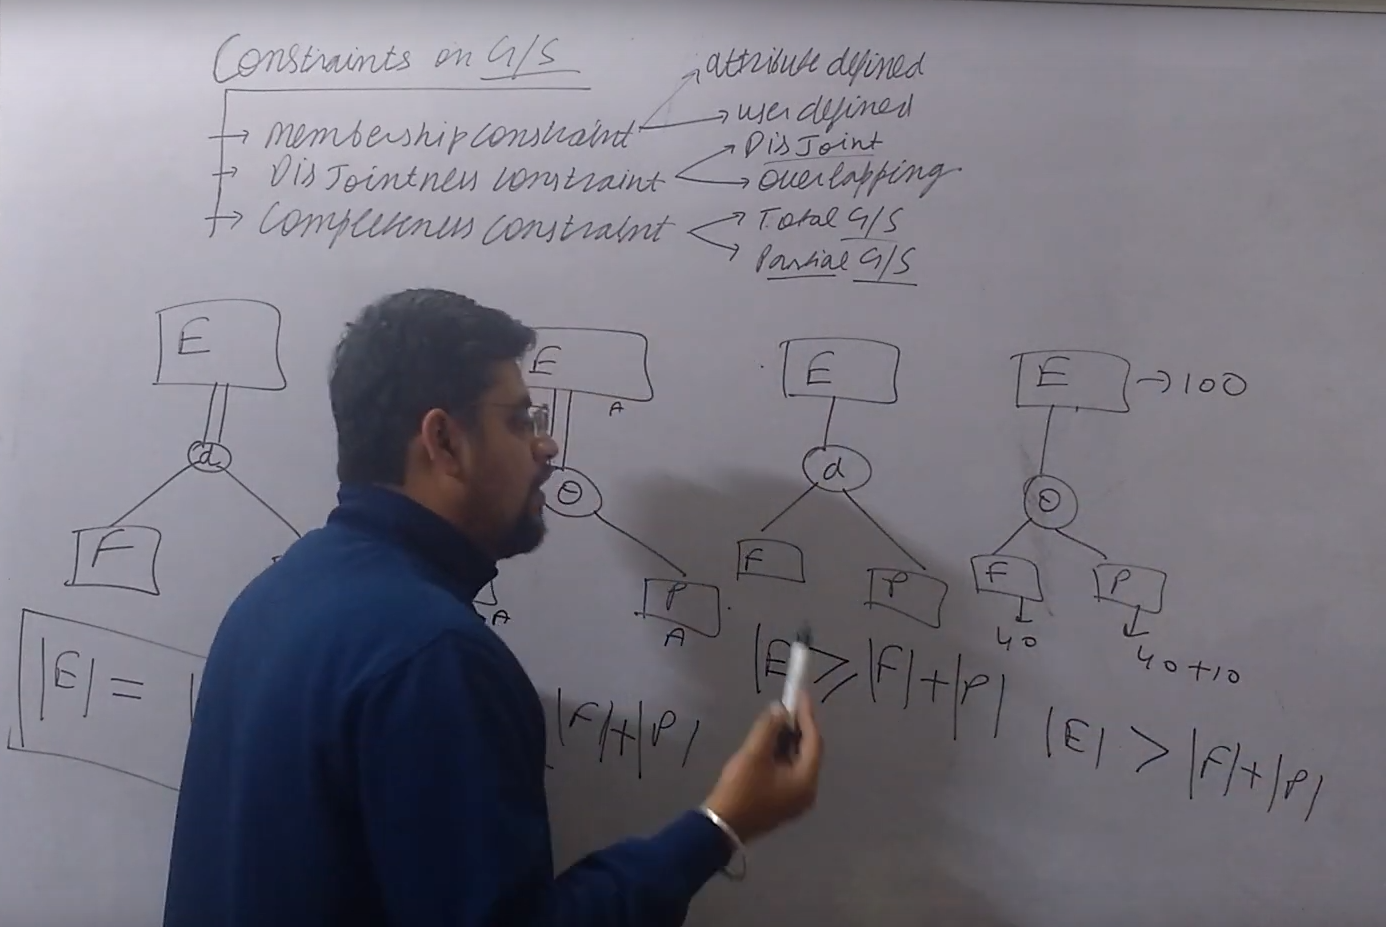 Constraints on G/S
→ Membership constraint → attribute defined
→ user defined
→ DisJointness constraint → DisJoint
→ overlapping
→ Completeness constraint → Total G/S
→ Partial G/S
E
d
F
A
|E| =
E
A
o
P
A
|F|+|P|
E
d
F
P
|E| ⩾ |F|+|P|
E → 100
o
F
P
40
40+10
|E| > |F|+|P|